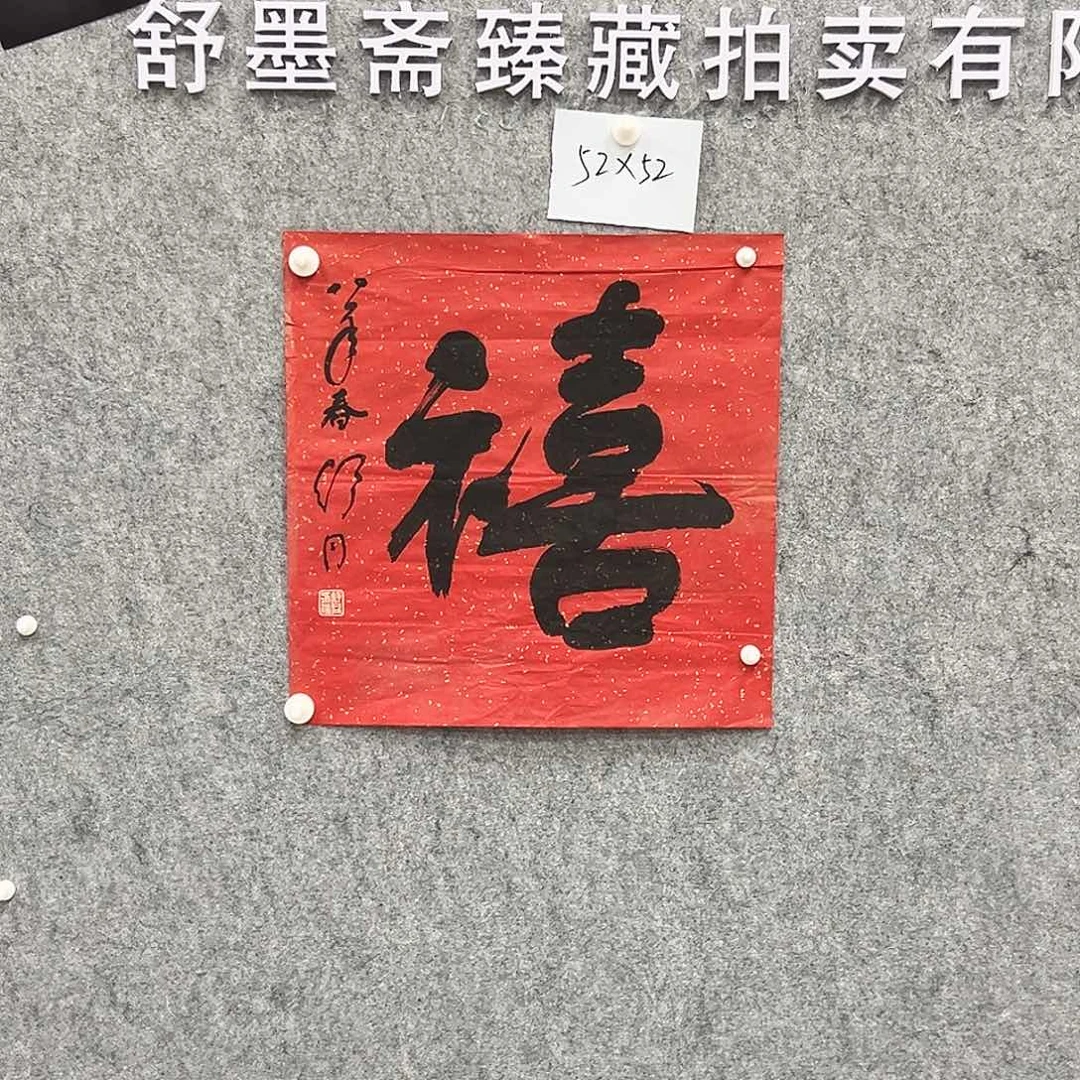 舒墨斋臻藏拍卖有
52×52
禧
春
同